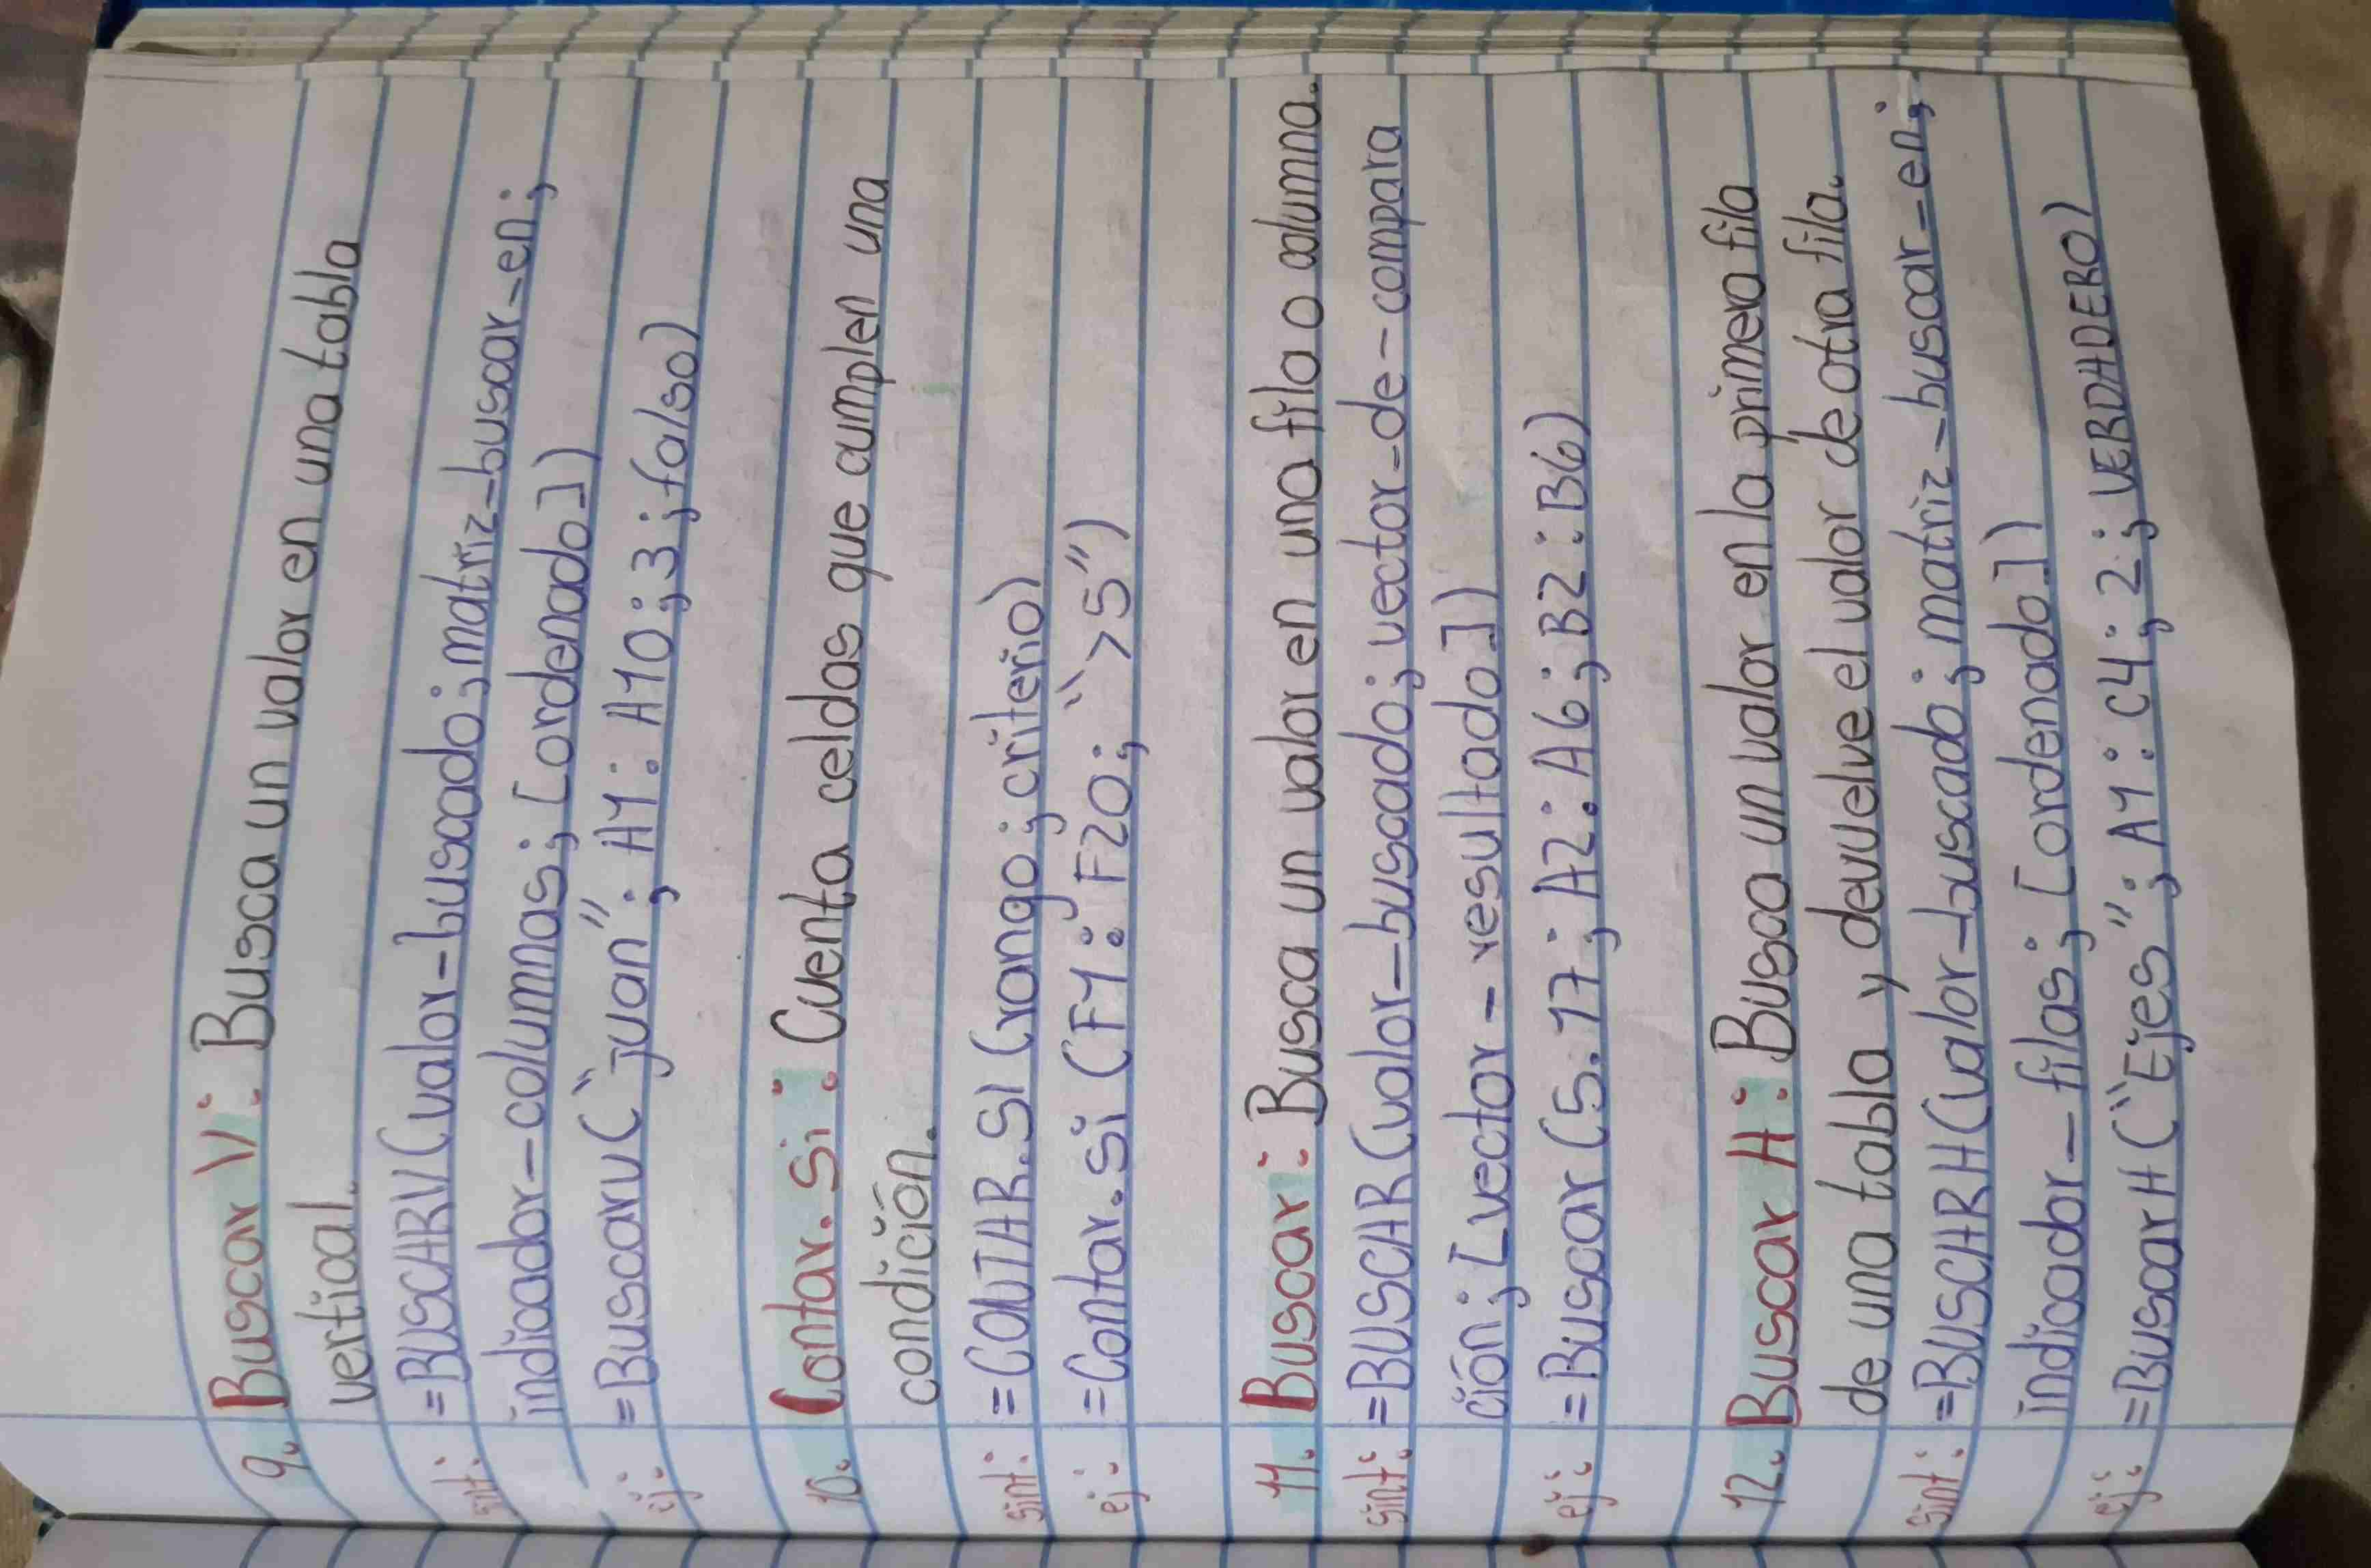 9. Buscar V: Busca un valor en una tabla
vertical.
sint: =BUSCARV(valor-buscado; matriz-buscar-en;
indicador-columnas; [ordenado])
ej: =Buscarv("juan"; A1: A10; 3; falso)
10. Contar.si: Cuenta celdas que cumplen una
condición.
sint: =CONTAR.SI(rango; criterio)
ej: =Contar.si (F1: F20; ">5")
11. Buscar: Busca un valor en una fila o columna.
sint: =BUSCAR(valor-buscado; vector-de-compara
ción; [vector-resultado])
ej: =Buscar(5.17; A2: A6; B2: B6)
12. Buscar H: Busca un valor en la primera fila
de una tabla y devuelve el valor de otra fila.
sint: =BUSCARH(valor-buscado; matriz-buscar-en;
indicador-filas; [ordenado])
ej: =BuscarH("Ejes"; A1: C4; 2; VERDADERO)